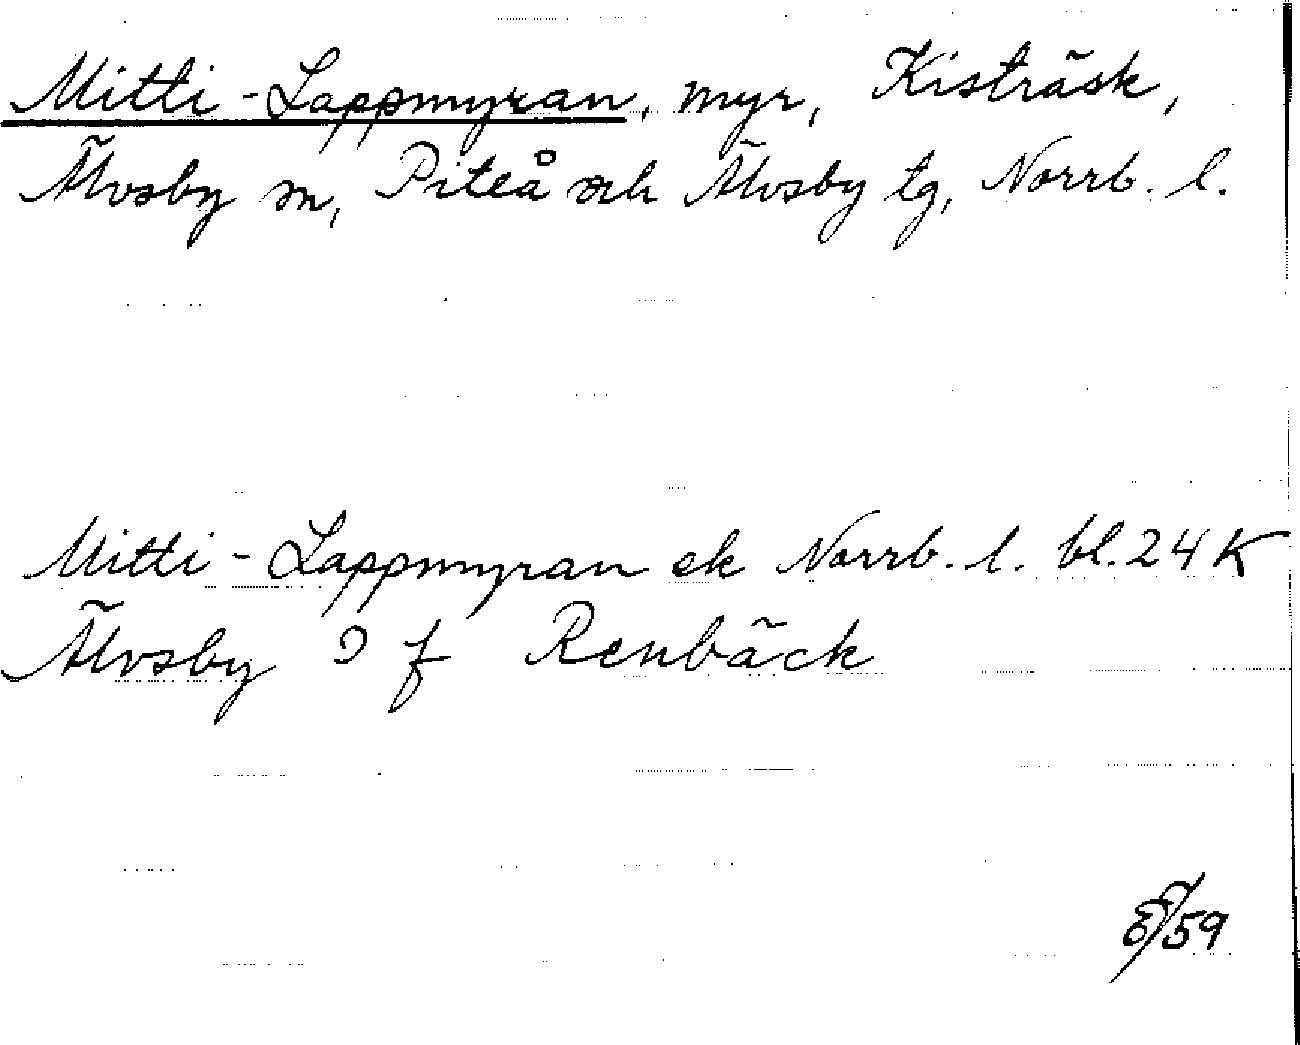 Mitti-Lappmyran, myr, Kisträsk,
Älvsby sn, Piteå och Älvsby tg, Norrb. l.
Mitti-Lappmyran ek Norrb. l. bl. 24 K
Älvsby f Renbäck
/59